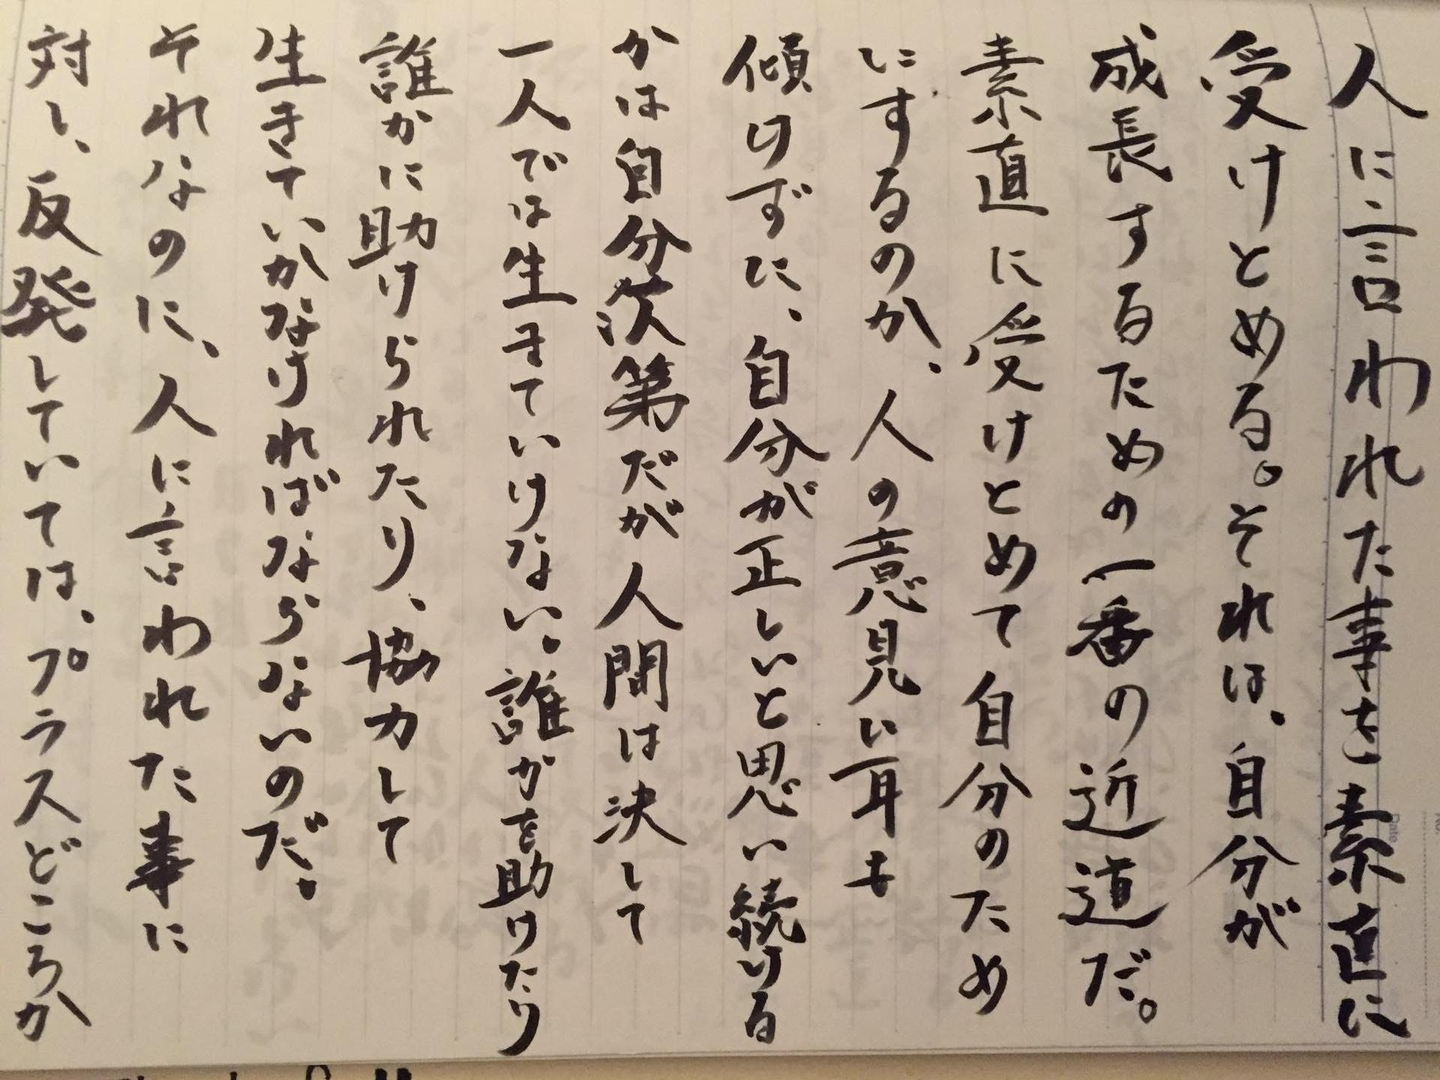 人に言われた事を素直に
受けとめる。それは、自分が
成長するための一番の近道だ。
素直に受けとめて自分のため
にするのか、人の意見に耳も
傾けずに、自分が正しいと思い続ける
かは自分次第だが人間は決して
一人では生きていけない。誰かを助けたり
誰かに助けられたり、協力して
生きていかなければならないのだ。
それなのに、人に言われた事に
対し、反発していては、プラスどころか